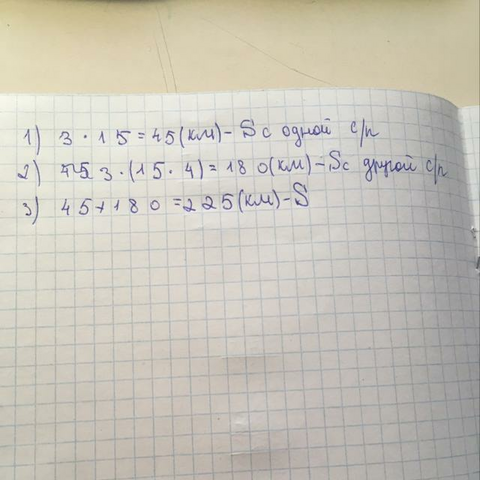 1) 3 · 15 = 45 (км) - S с одной с/п
2) 3 · (15 · 4) = 180 (км) - S с другой с/п
3) 45 + 180 = 225 (км) - S